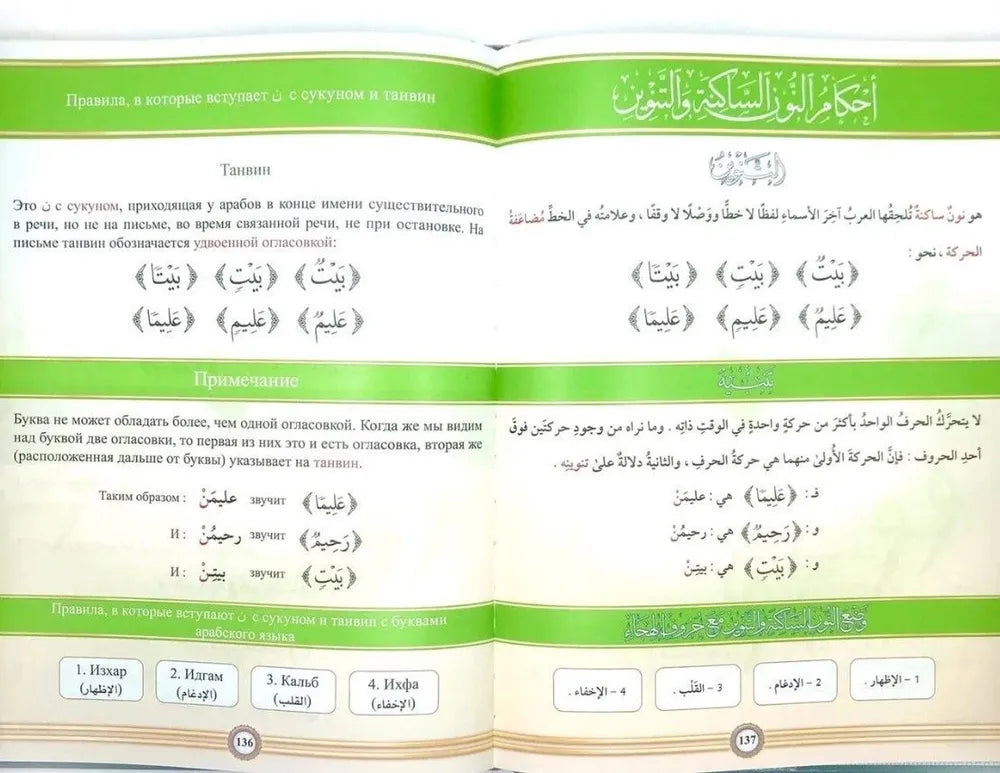 Правила, в которые вступает ن с сукуном и танвин
Танвин
Это ن с сукуном, приходящая у арабов в конце имени существительного
в речи, но не на письме, во время связанной речи, не при остановке. На
письме танвин обозначается удвоенной огласовкой:
﴿بَيْتٌ﴾ ﴿بَيْتٍ﴾ ﴿بَيْتًا﴾
﴿عَلِيمٌ﴾ ﴿عَلِيمٍ﴾ ﴿عَلِيمًا﴾
Примечание
Буква не может обладать более, чем одной огласовкой. Когда же мы видим
над буквой две огласовки, то первая из них это и есть огласовка, вторая же
(расположенная дальше от буквы) указывает на танвин.
Таким образом : عليمَنْ звучит ﴿عَلِيمًا﴾
И : رحيمُنْ звучит ﴿رَحِيمٌ﴾
И : بيتِنْ звучит ﴿بَيْتٍ﴾
Правила, в которые вступают ن с сукуном и танвин с буквами
арабского языка
1. Изхар
(الإظهار)
2. Идгам
(الإدغام)
3. Кальб
(القلب)
4. Ихфа
(الإخفاء)
136
أحكام النُّونِ السَّاكنةِ والتَّنوين
التنوين
هو نونٌ ساكنةٌ تُلحِقُها العربُ آخِرَ الأسماءِ لفظًا لا خطًّا ووَصْلًا لا وقفًا ، وعلامتُه في الخطِّ مُضاعَفةُ
الحركة ، نحو :
﴿بَيْتٌ﴾ ﴿بَيْتٍ﴾ ﴿بَيْتًا﴾
﴿عَلِيمٌ﴾ ﴿عَلِيمٍ﴾ ﴿عَلِيمًا﴾
تنبيه
لا يتحرَّكُ الحرفُ الواحدُ بأكثرَ من حركةٍ واحدةٍ في الوقتِ ذاتِه . وما نراه من وجودِ حركتَين فوقَ
أحدِ الحروف : فإنَّ الحركةَ الأُولىٰ منهما هي حركةُ الحرفِ ، والثانيةُ دلالةٌ علىٰ تنوينِه .
فـ : ﴿عَلِيمًا﴾ هي : عليمَنْ
و : ﴿رَحِيمٌ﴾ هي : رحيمُنْ
و : ﴿بَيْتٍ﴾ هي : بيتِنْ
وَضْع النون السَّاكنة والتنوين مع حروف الهجاء
1 – الإظهار .
2 – الإدغام .
3 – القَلْب .
4 – الإخفاء .
137